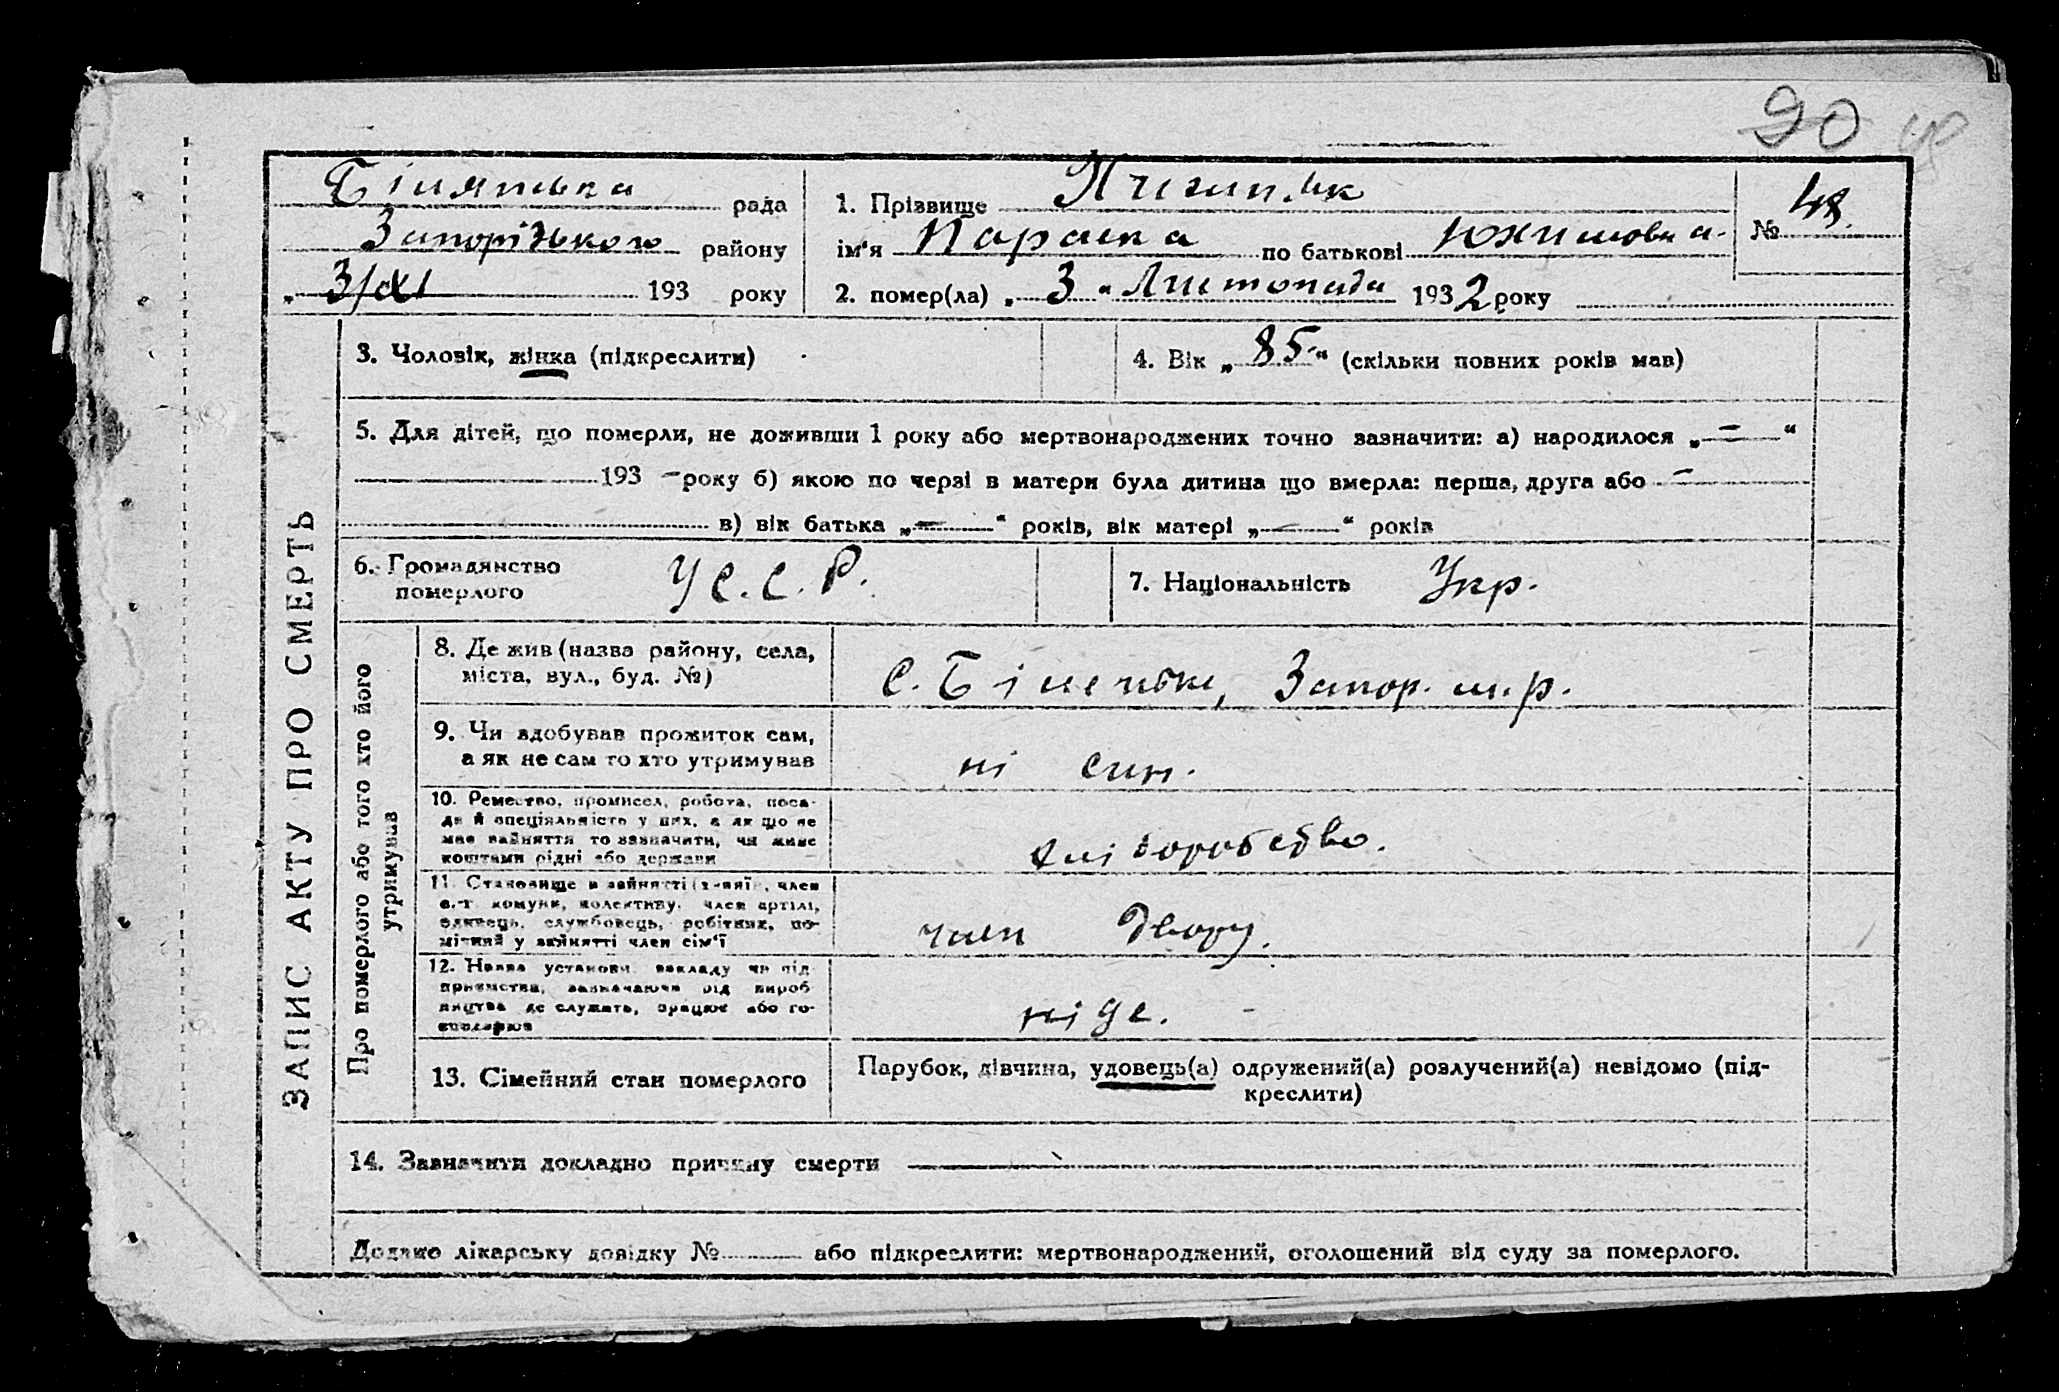 90
рада
1. Прізвище
№ 48.
Запорізького району
ім'я Параска по батькові Юхимовна
3/XI 193 року
2. помер(ла) „ 3 " Листопада 1932 року
3. Чоловік, жінка (підкреслити)
4. Вік „ 85 " (скільки повних років мав)
5. Для дітей, що померли, не доживши 1 року або мертвонароджених точно зазначити: а) народилося „ — "
193 – року б) якою по черзі в матери була дитина що вмерла: перша, друга або –
в) вік батька „ — " років, вік матері „ — " років
6. Громадянство
померлого
У С. С. Р.
7. Національність Укр.
ЗАПИС АКТУ ПРО СМЕРТЬ
Про померлого або того хто його
утримував
8. Де жив (назва району, села,
міста, вул., буд. №)
с. Біленьке, Запор. м. р.
9. Чи здобував прожиток сам,
а як не сам то хто утримував
ні син.
10. Ремество, промисел, робота, поса-
да й спеціяльність у них, а як що не
мав зайняття то зазначити, чи живе
коштами рідні або держави
хліборобство.
11. Становище в зайнятті член
комуни, колективу, член артілі,
одинець, службовець, робітник, по-
мічний у зайнятті член сім'ї
член двору.
12. Назва установи, закладу чи під-
приємства, зазначаючи рід вироб-
ництва де служить, працює або го-
сподарює
ніде.
13. Сімейний стан померлого
Парубок, дівчина, удовець(а) одружений(а) розлучений(а) невідомо (під-
креслити)
14. Зазначити докладно причину смерти
Додано лікарську довідку № або підкреслити: мертвонароджений, оголошений від суду за померлого.